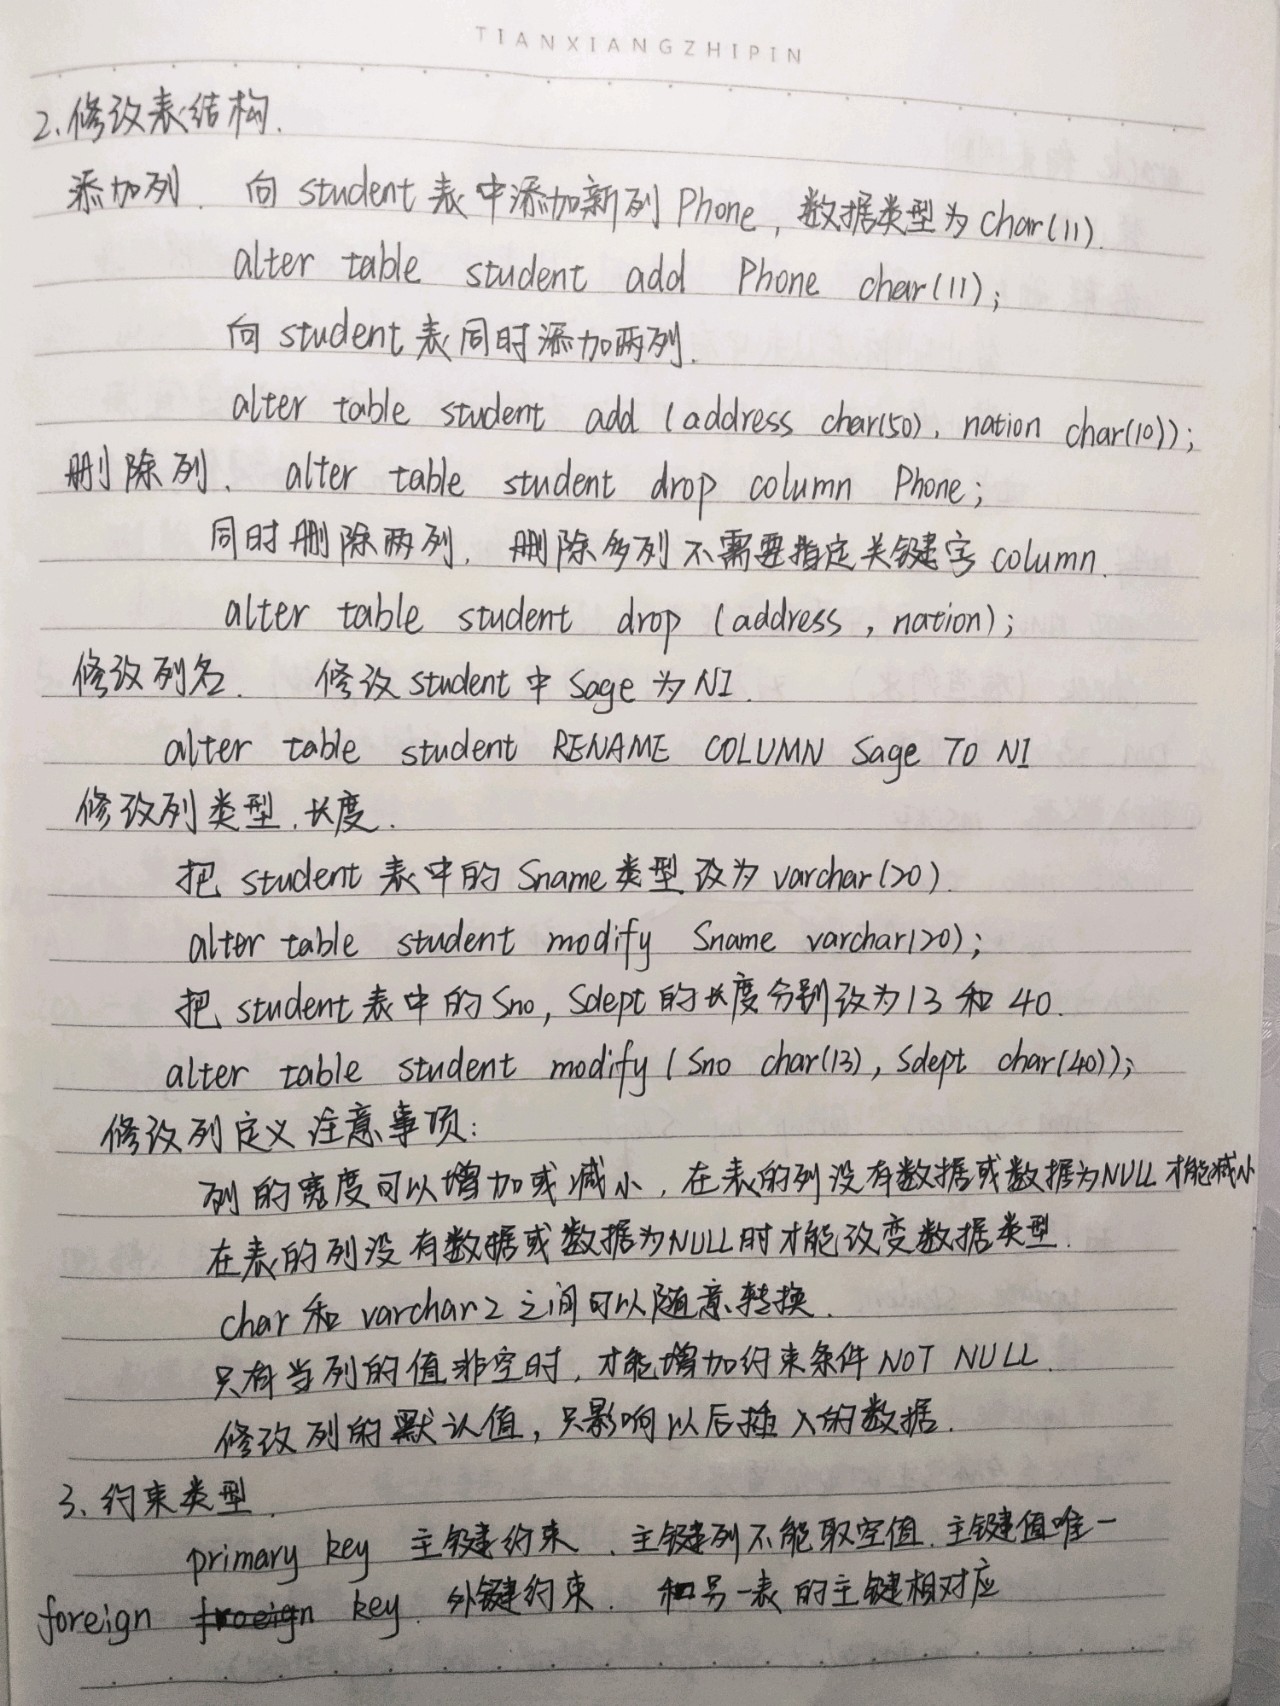 TIANXIANGZHIPIN
2、修改表结构.
添加列. 向student表中添加新列Phone,数据类型为char(11).
alter table student add Phone char(11);
向student表同时添加两列.
alter table student add (address char(50), nation char(10));
删除列. alter table student drop column Phone;
同时删除两列. 删除多列不需要指定关键字column.
alter table student drop (address, nation);
修改列名. 修改student中Sage为NI.
alter table student RENAME COLUMN Sage TO NI
修改列类型.长度.
把student表中的Sname类型改为varchar(20).
alter table student modify Sname varchar(20);
把student表中的Sno, Sdept的长度分别改为13和40.
alter table student modify (Sno char(13), Sdept char(40));
修改列定义注意事项:
列的宽度可以增加或减小.在表的列没有数据或数据为NULL才能减小
在表的列没有数据或数据为NULL时才能改变数据类型.
char和varchar2之间可以随意转换.
只有当列的值非空时,才能增加约束条件NOT NULL.
修改列的默认值,只影响以后插入的数据.
3、约束类型.
primary key 主键约束.主键列不能取空值.主键值唯一
foreign froeign key. 外键约束. 和另一表的主键相对应